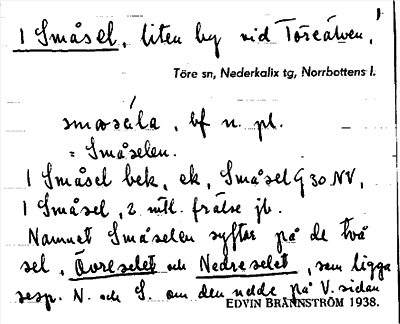 1 Småsel, liten by vid Töreälven,
Töre sn, Nederkalix tg, Norrbottens l.
smɷsála, bf n. pl.
= Småselen.
1 Småsel bek, ek, Småsel G 30 NV,
1 Småsel, 2 mtl. frälse jb.
Namnet Småselen syftar på de två
sel, Övreselet och Nedreselet, som ligga
resp. N. och S. om den udde på V. sidan
EDVIN BRÄNNSTRÖM 1938.